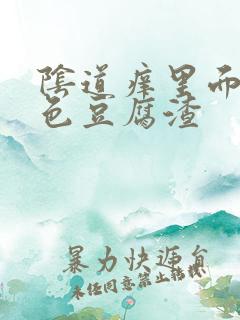 陰道癢里而
色豆腐渣
暴力快遞員
未任同意禁止轉載